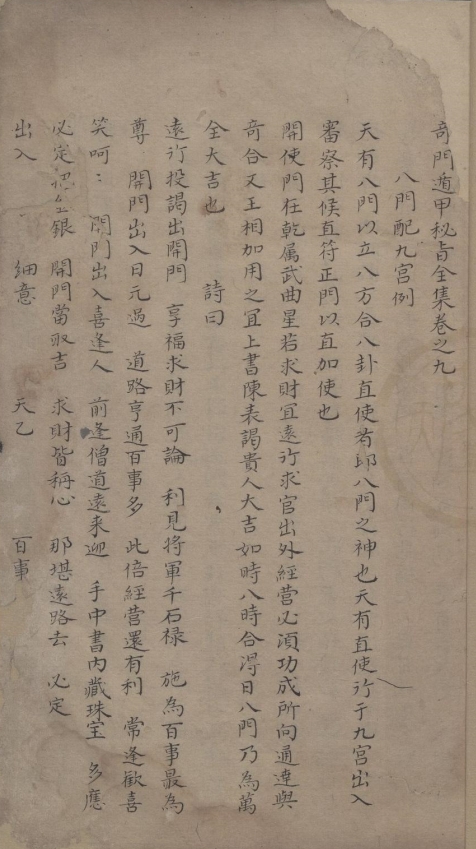 奇門遁甲秘旨全集卷之九
八門配九宮例
天有八門以立八方合八卦直使者即八門之神也天有直使行于九宮出入
審察其候直符正門以直加使也
開使門在乾属武曲星若求財宜遠行求官出外經营必湏功成所向通達與
奇合又王相加用之宜上書陳表謁貴人大吉如時八時合得日八門乃為萬
全大吉也　　詩曰
遠行投謁出開門　享福求財不可論　利見將軍千石禄　施為百事最為
尊　開門出入日元過　道路亨通百事多　此倍經营還有利　常逢歡喜
笑呵〻　開門出入喜逢人　前逢僧道遠来迎　手中書内藏珠宝　多應
必定 金銀　開門當取吉　求財皆稱心　那堪遠路去　必定
出入　細意　天乙　百事